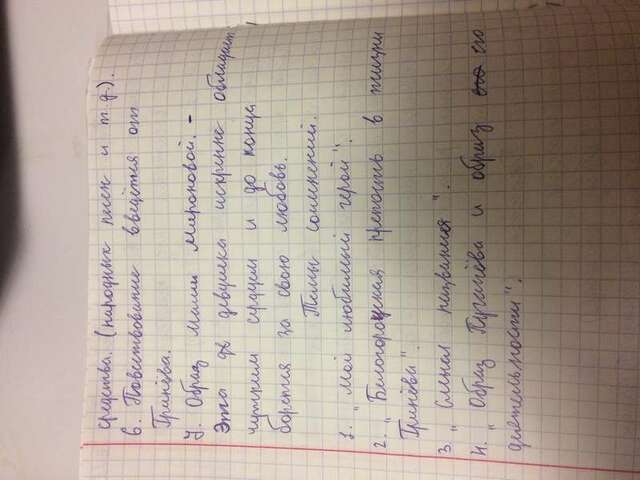 средства. (народных песен и т.д.).
6. Повествование введётся от
Гринёва.
7. Образ Маши Мироновой. -
Эта дв девушка искренне обладает
чутким сердцем и до конца
борется за свою любовь.
Темы сочинений.
1. „Мой любимый герой".
2. „Белогорская крепость в жизни
Гринёва".
3 „Смысл названия".
4. „Образ Пугачёва и образ его его
деятельности".